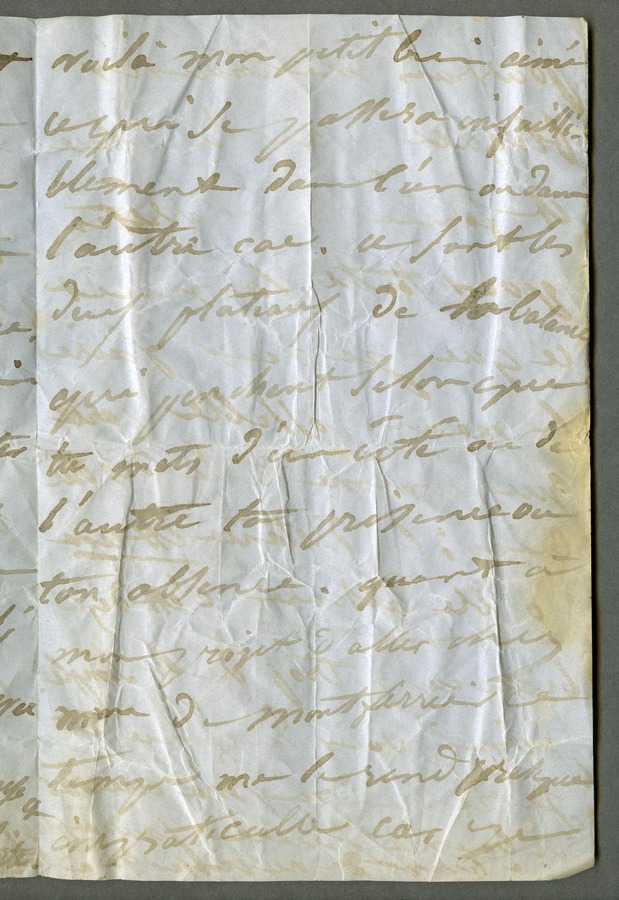 voilà mon petit bien aimé
ce qui se passera infailli-
blement dans l'un ou dans
l'autre cas. ce sont les
deux plateaux de la balance
qui penchent selon que
tu mets d'un côté ou de
l'autre ta présence ou
ton absence. quant à
mon projet d'aller chez
mme de montferrier le
temps me le rend presque
impraticable car je